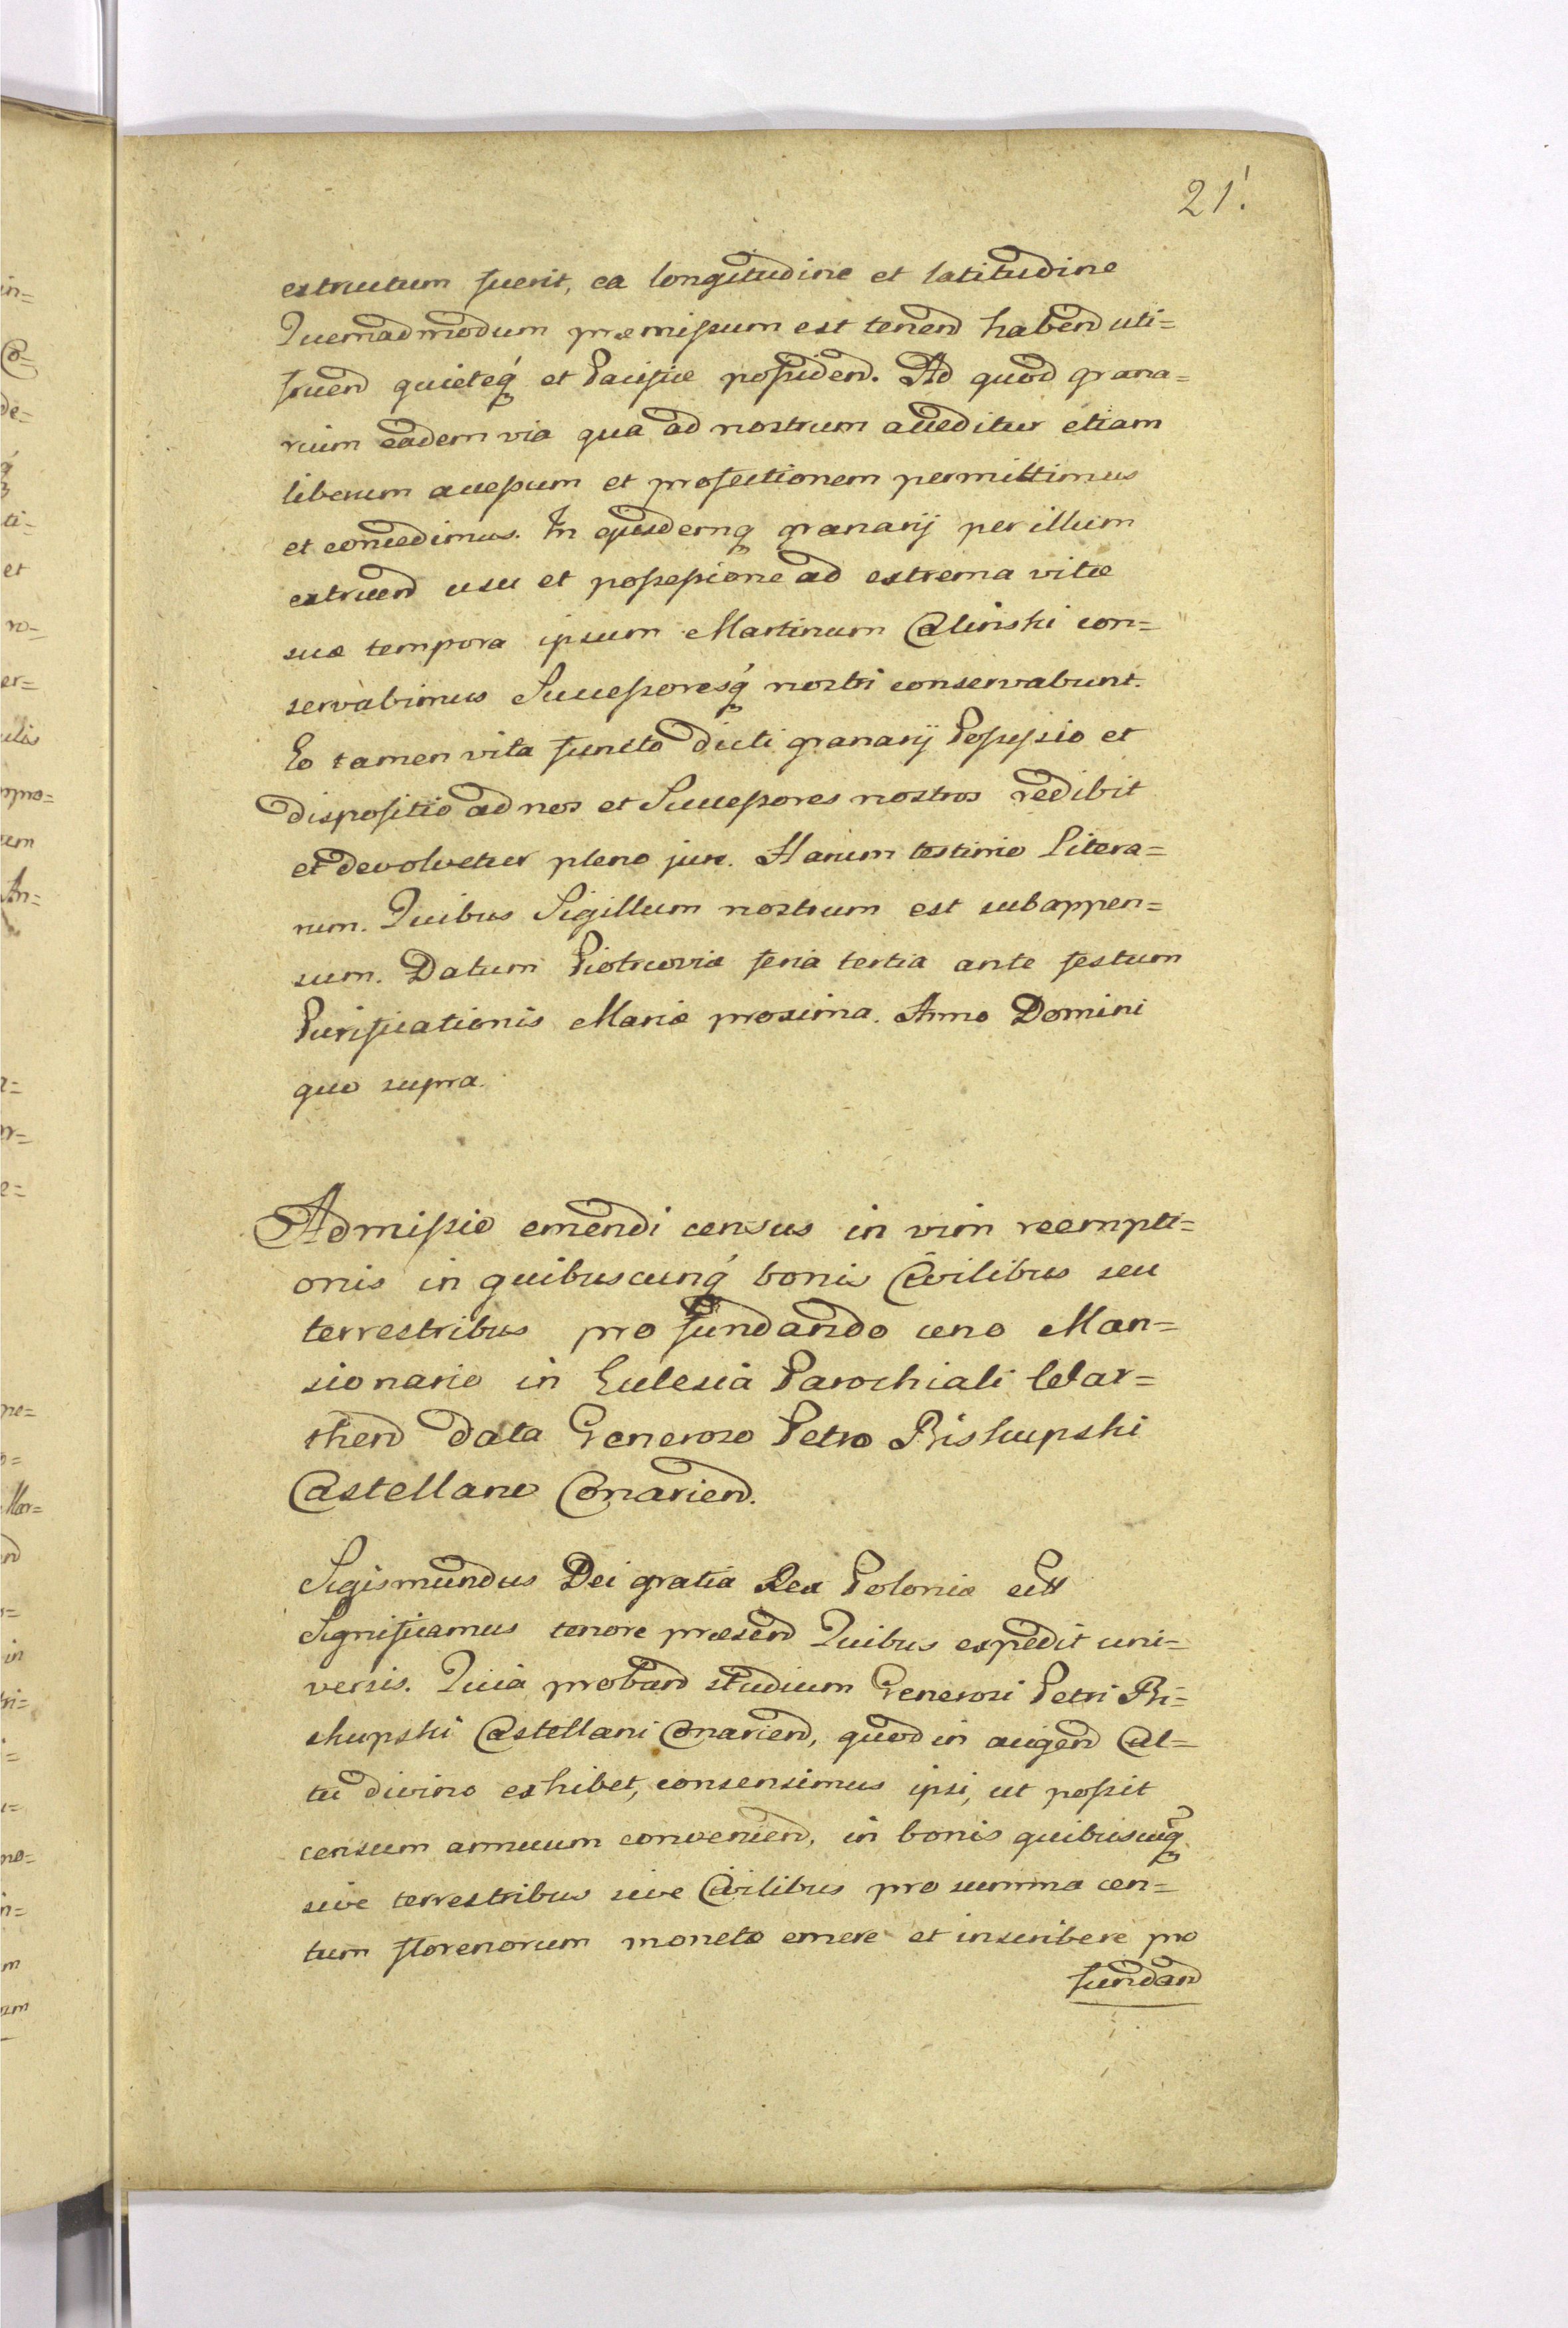 21.
extructum fuerit, ea longitudine et latitudine
Quemadmodum præmissum est tenend habend uti=
fruend quieteq́ et Pacifice possidend. Ad quod grana=
rium eadem via qua ad nostrum acceditur etiam
liberum accessum et profectionem permittimus
et concedimus. In ejusdemq granarij per illum
extruend usu et possessione ad extrema vitæ
suæ tempora ipsum Martinum Calinski con=
servabimus Successoresq́ nostri conservabunt.
Eo tamen vita functo dicti granarij Possessio et
dispositio ad nos et Successores nostros redibit
et devolvetur pleno jure. Harum testimo Litera=
rum. Quibus Sigillum nostrum est subappen=
sum. Datum Piotrcoviæ feria tertia ante festum
Purificationis Mariæ proxima. Anno Domini
quo supra.
Admissio emendi census in vim reempti=
onis in quibuscunq́ bonis Civilibus seu
terrestribus pro fundando uno Man=
sionario in Ecclesia Parochiali War=
thend data Generoso Petro Biskupski
Castellano Conariend.
Sigismundus Dei gratia Rex Poloniæ ect
Significamus tenore præsend Quibus expedit uni=
versis. Quia proband studium Generosi Petri Bi=
skupski Castellani Conariend, quod in augend Cul=
tu divino exhibet, consensimus ipsi, ut possit
censum annuum conveniend, in bonis quibuscuq̃
sive terrestribus sive Civilibus pro summa cen=
tum florenorum monetæ emere et inscribere pro
fundand